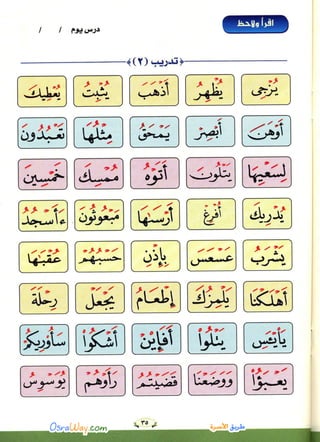 اقرأ ولاحظ
درس يوم / /
تدريب (٢)
يُزْجِى يُظْهِرُ أَذْهَبَ يُثْبِتُ يُعْطِيكَ
أَوْهَنَ أَبْصِرْ يَمْحَقُ مِثْلُهَا تَعْبُدُونَ
لِسَعْيِهَا يَتْلُونَ أَتَوْهُ مُمْسِكَ خَمْسِينَ
يُدْرِيكَ أُفْرِغْ أَرْسَهَا مَبْعُوثُونَ ءَأَسْجُدُ
يَشْرَبُ عَسْعَسَ بِإِذْنِ حَسْبُهُمْ عُقْبَهَا
أَهْلَكْنَا يَلْمِزُكَ إِطْعَامُ يَجْعَلُ رِحْلَةَ
يَايْئَسِ يَتْلُوا أَفَإِيْن أَشْكُوا سَأُوْرِيكُمْ
يَعْبَؤُا وَوَضَعْنَا قَضَيْتُمْ رَأَوْهُمْ يُوَسْوِسُ
OsraWay.com ٣٥ طريق الأسرة